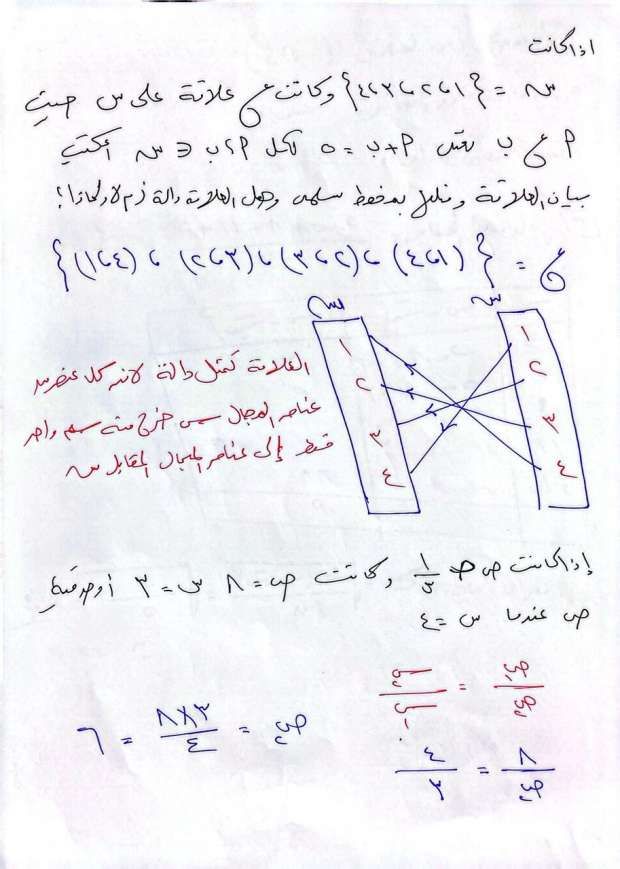 اذا كانت
س = {١ ، ٢ ، ٣ ، ٤} وكانت ع علاقة على س حيث
أ ع ب تعني أ + ب = ٥ لكل أ ، ب ∈ س أكتب
بيان العلاقة ومثلها بمخطط سهمى وهل العلاقة دالة أم لا ولماذا؟
ع = {(١ ، ٤) ، (٢ ، ٣) ، (٣ ، ٢) ، (٤ ، ١)}
س س
١ ١
٢ ٢
٣ ٣
٤ ٤
العلاقة تمثل دالة لانه كل عنصر من
عناصر المجال س خرج منه سهم واحد
فقط إلى عناصر المجال المقابل س
إذا كانت ص ∝ ١/س وكانت ص = ٨ س = ٣ أوجد قيمة
ص عندما س = ٤
ص١/ص٢ = س٢/س١
٨/ص٢ = ٤/٣
ص٢ = ٣×٨/٤ = ٦